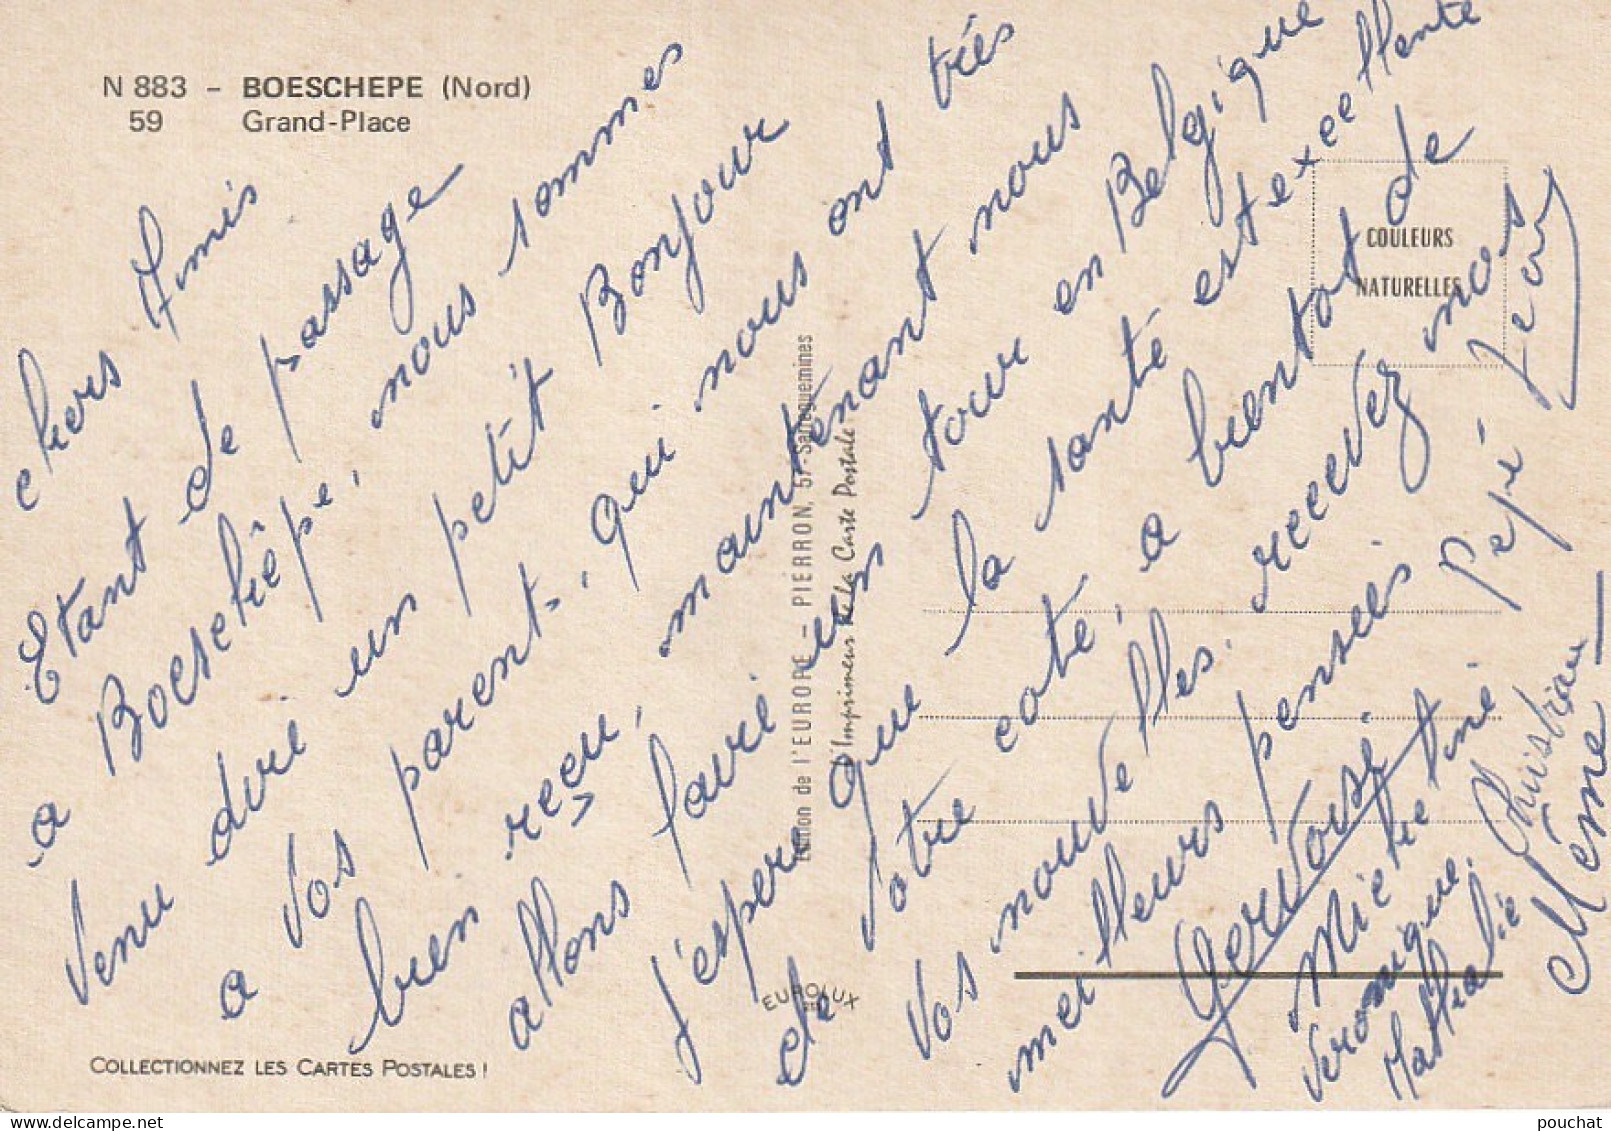 N 883 - BOESCHEPE (Nord)
59 Grand-Place
chers Amis
Etant de passage
a Boeschêpe, nous sommes
venu dire un petit Bonjour
a vos parents, qui nous ont très
bien reçu, maintenant nous
allons faire un tour en Belgique
j'espere que la santé est exellente
de votre coté, a bientot de
vos nouvelles, recevez nos
meilleurs pensées Pepé
Gervose
Mémé
Christian
Veronique
Nathalie
COULEURS
NATURELLES
Edition de l'EUROPE - PIERRON, 57-Sarreguemines
L'Imprimeur de la Carte Postale
EUROLUX
COLLECTIONNEZ LES CARTES POSTALES !
pouchat